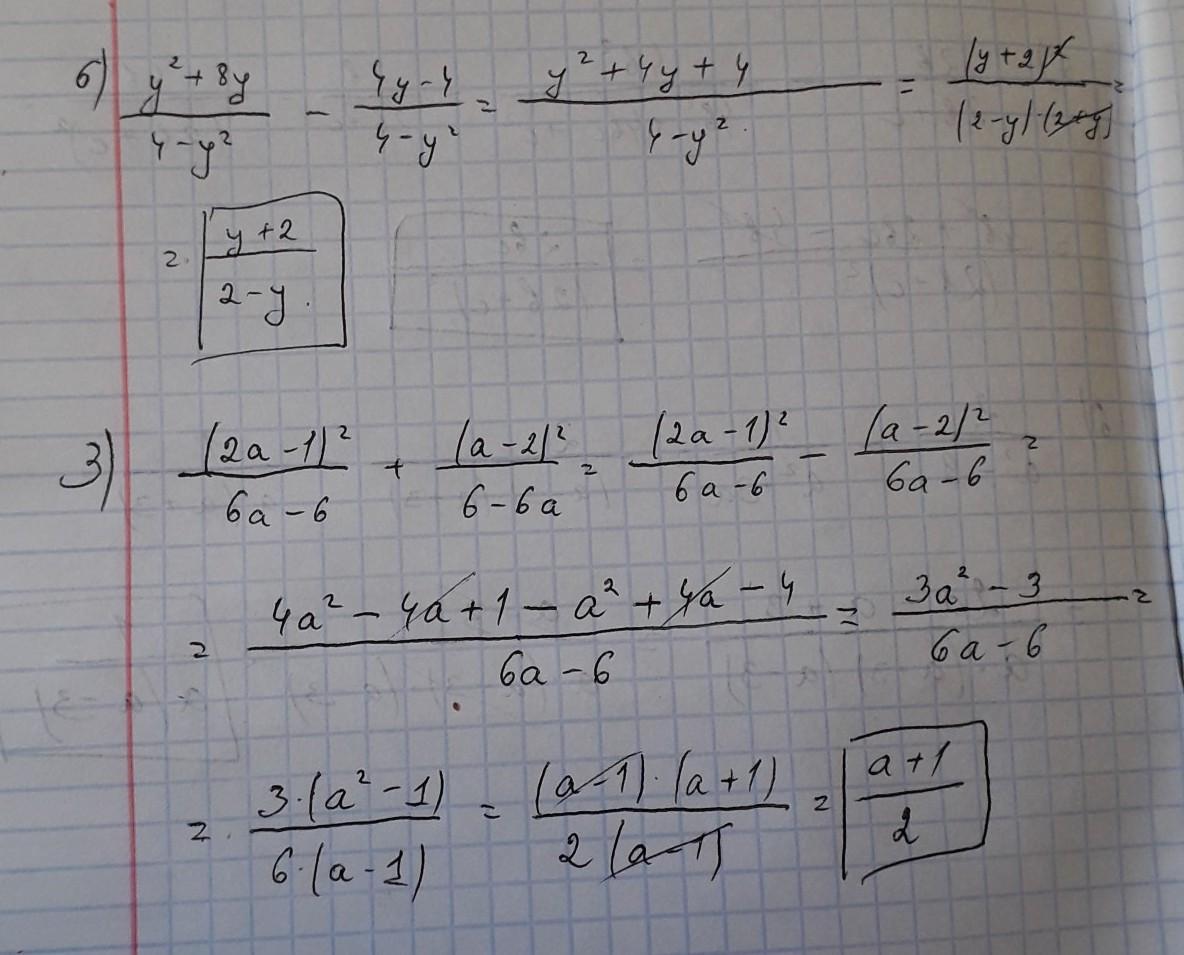 б) (y² + 8y)/(4 - y²) - (4y - 4)/(4 - y²) = (y² + 4y + 4)/(4 - y²) = (y + 2)²/((2 - y)·(2 + y)) =
= (y + 2)/(2 - y)
3) (2a - 1)²/(6a - 6) + (a - 2)²/(6 - 6a) = (2a - 1)²/(6a - 6) - (a - 2)²/(6a - 6) =
= (4a² - 4a + 1 - a² + 4a - 4)/(6a - 6) = (3a² - 3)/(6a - 6) =
= (3·(a² - 1))/(6·(a - 1)) = ((a - 1)·(a + 1))/(2(a - 1)) = (a + 1)/2